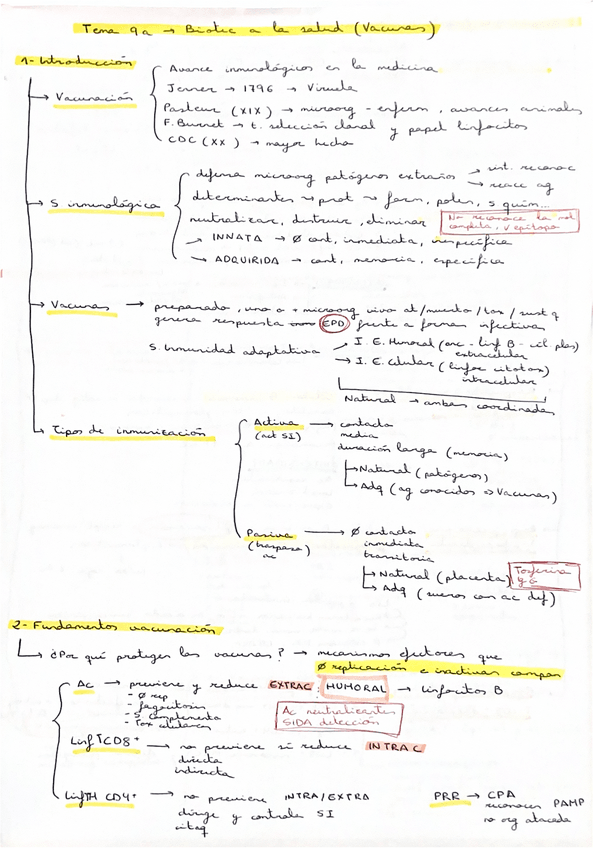 Tema 9a → Biotec a la salud (Vacunas)
1- Introducción
→ Vacunación
Avance inmunológicos en la medicina
Jenner → 1796 → Viruela
Pasteur (XIX) → microorg - enferm, avances animales
F. Burnet → t. selección clonal y papel linfocitos
CDC (XX) → mayor hecho
→ S inmunológica
defensa microorg patógenos extraños → sist. reconoc
→ reacc ag
determinantes → prot → form, polis, s quim...
neutralizar, destruir, eliminar
No reconoce la mol completa, V epítopo
→ INNATA → Ø cont, inmediata, inespecífica
→ ADQUIRIDA → cont, memoria, específica
→ Vacunas → preparado, uno o + microorg vivo at/muerto/tox/sust q
genera respuesta EPD frente a formas infectivas
S. Inmunidad adaptativa → I. E. Humoral (anc - linf B - cél plas)
extracelular
→ I. E. Celular (linfoc citotox)
intracelular
Natural → ambas coordinadas
→ Tipos de inmunización
Activa → contacto
(act SI) media
duración larga (memoria)
→ Natural (patógenos)
→ Adq (ag conocidos => Vacunas)
Pasiva → Ø contacto
(traspaso ac) inmediata
transitoria
→ Natural (placenta)
Tosferina
→ Adq (sueros con ac def)
2- Fundamentos vacunación
→ ¿Por qué protegen las vacunas? → mecanismos efectores que
Ø replicación e inactivan
Ac → previene y reduce EXTRAC: HUMORAL → linfocitos B
- Ø rep
- fagocitosis
- S complemento
- Tox celulares
Ac neutralizantes
SIDA detección
LinfTCD8+ → no previene sí reduce INTRAC
directa
indirecta
LinfTH CD4+ → no previene INTRA/EXTRA
dirige y controla SI
citoq
PRR → CPA
reconocen PAMP
no org atacado